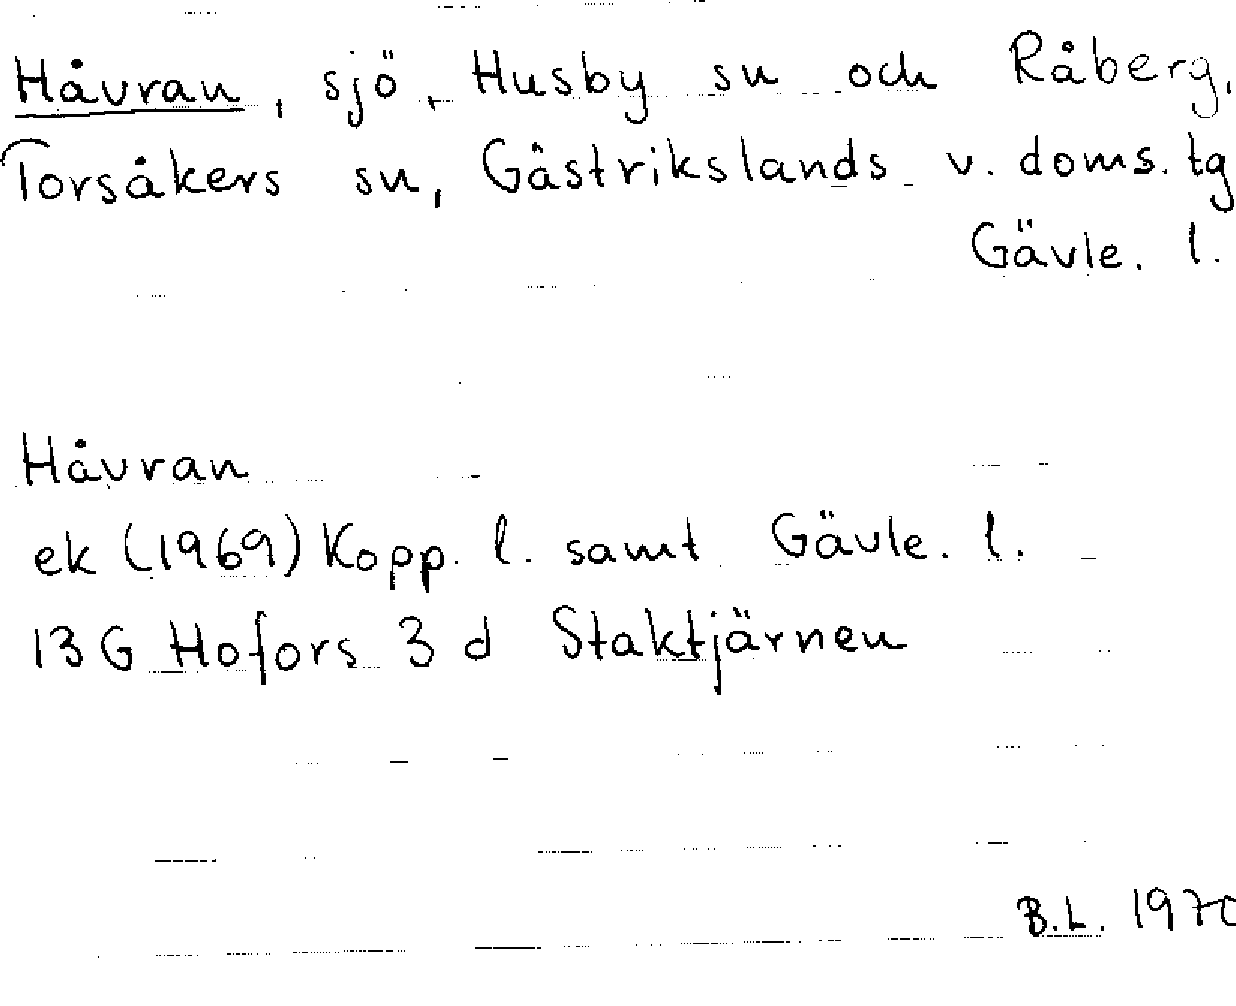 Håvran, sjö, Husby sn och Råberg,
Torsåkers sn, Gästrikslands v. doms. tg
Gävle. l.
Håvran
ek (1969) Kopp. l. samt Gävle. l.
13 G Hofors 3 d Staktjärnen
B.L. 1970